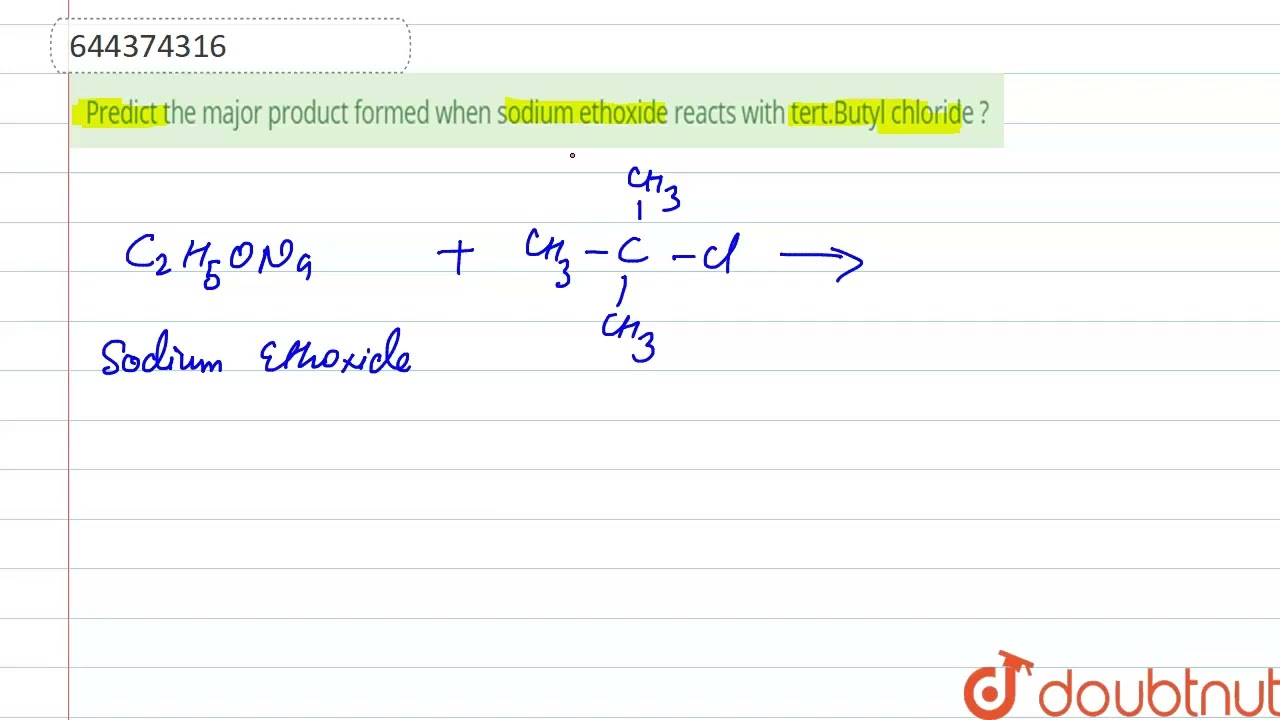 644374316
Predict the major product formed when sodium ethoxide reacts with tert.Butyl chloride ?
CH3
C2H5ONa + CH3-C-Cl →
CH3
Sodium Ethoxide
doubtnut